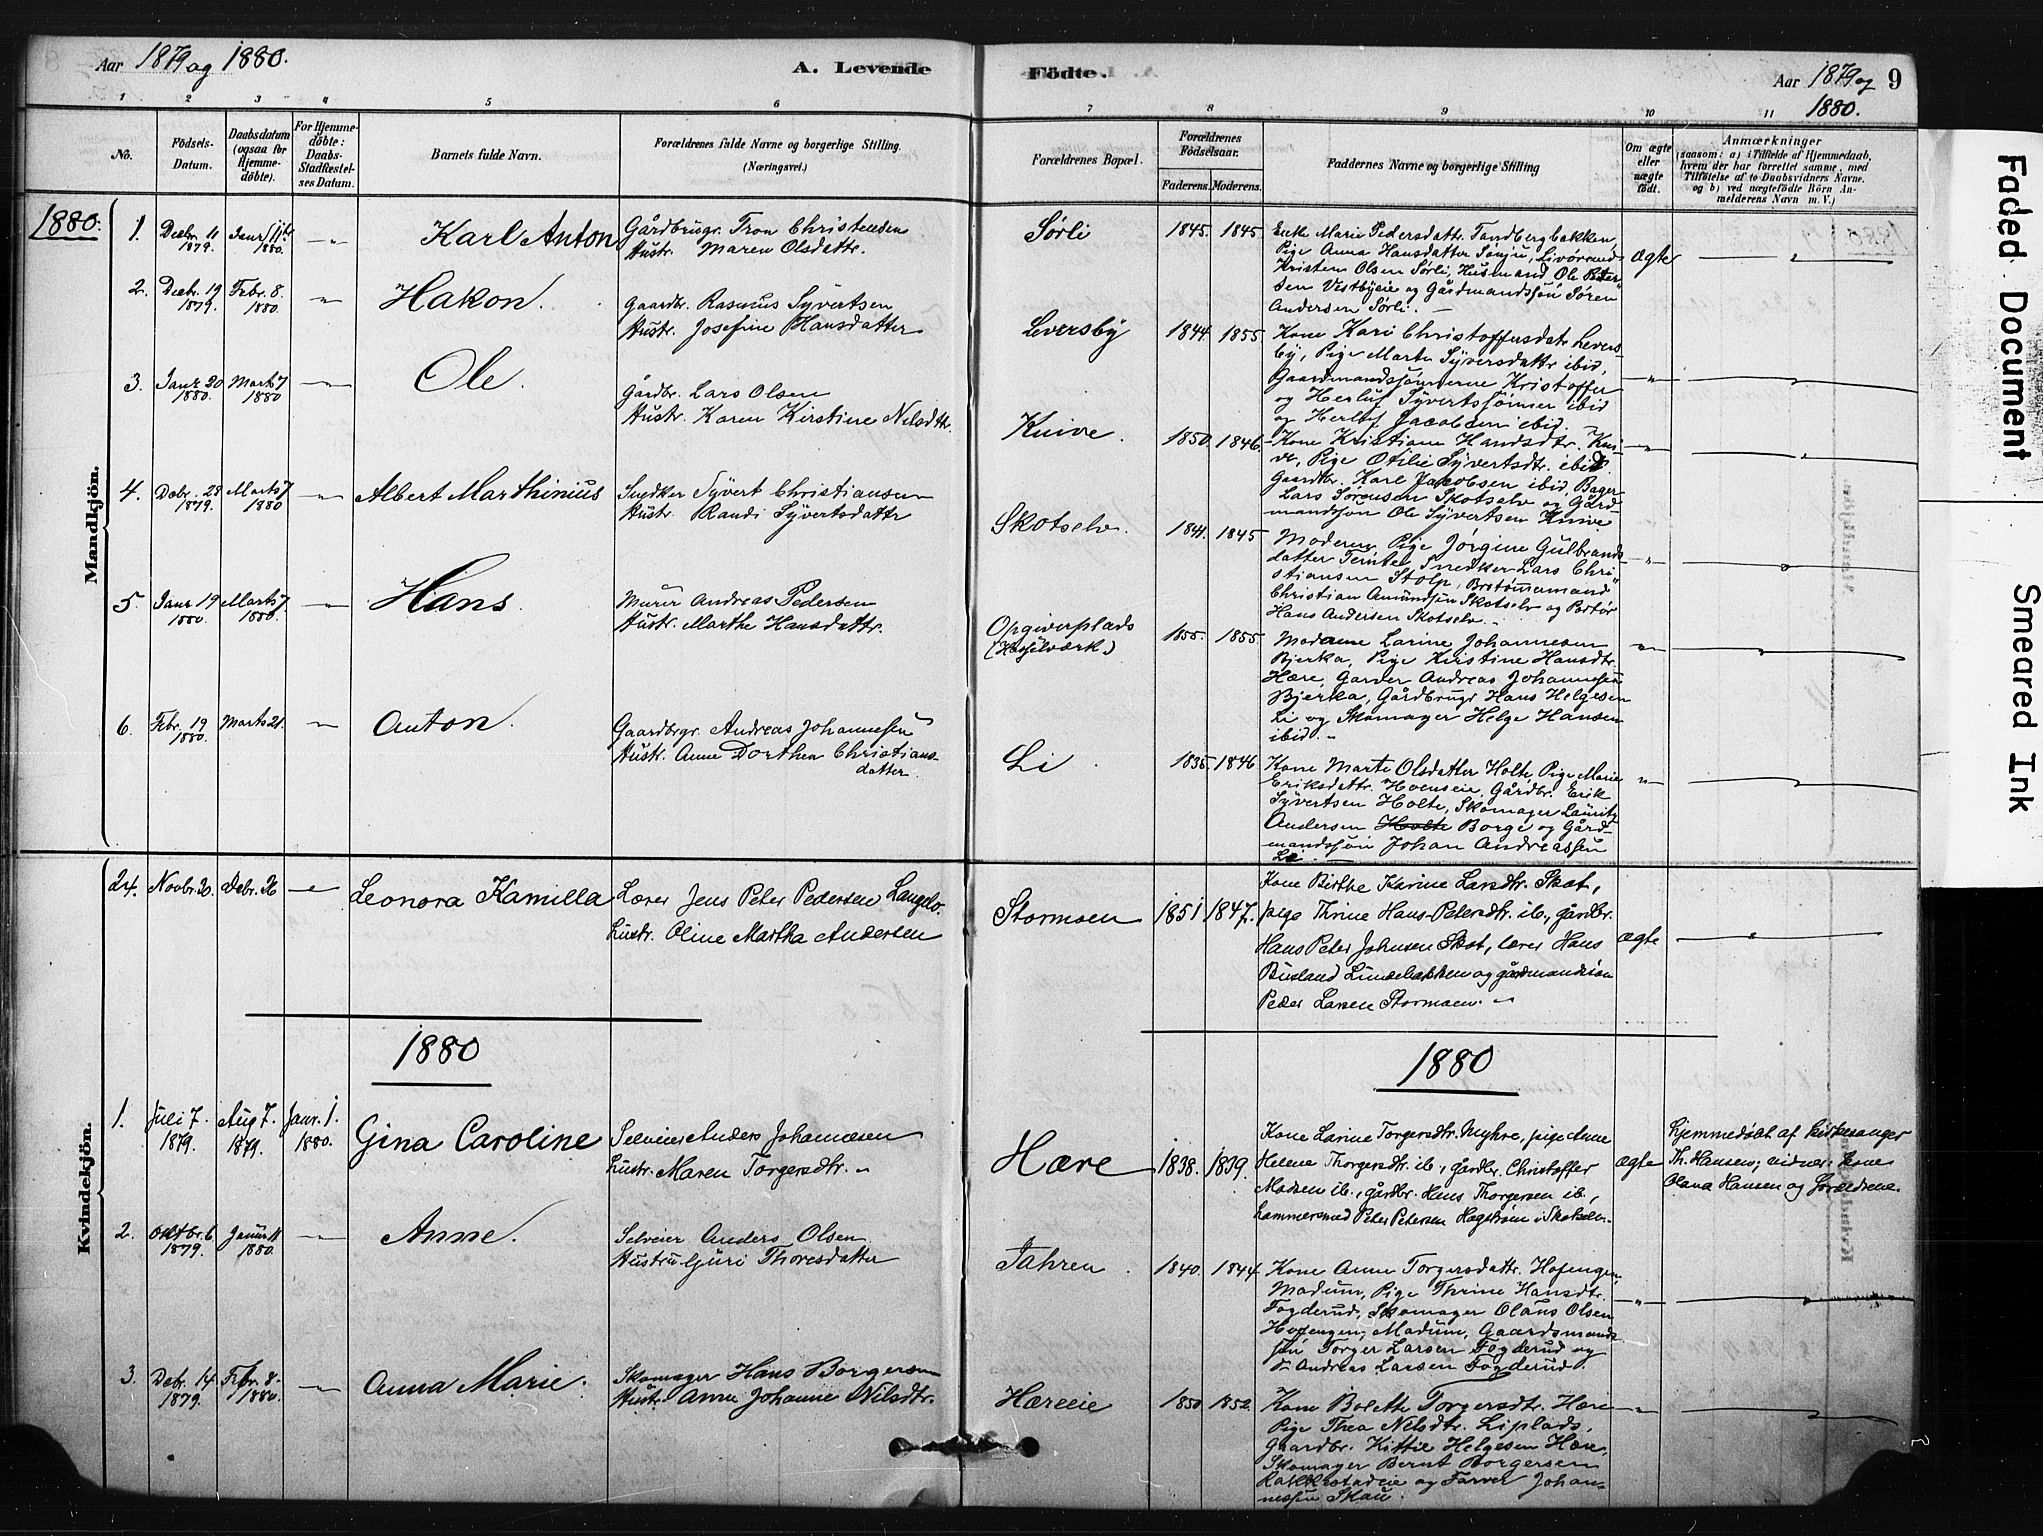 Aar 1879 og 1880.
A. Levende
Födte.
Aar 1879 og 1880.
9
1 2 3 4 5 6 7 8 9 10 11
No.
Födsels-Datum.
Daabsdatum (ogsaa for Hjemme-döbte).
For Hjemme-döbte: Daabs-Stadfæstel-ses Datum.
Barnets fulde Navn.
Forældrenes fulde Navne og borgerlige Stilling. (Næringsvei.)
Forældrenes Bopæl.
Forældrenes Födselsaar.
Faderens. Moderens.
Faddernes Navne og borgerlige Stilling
Om ægte eller uægte födt.
Anmærkninger
(saasom: a) i Tilfælde af Hjemmedaab, hvem der har forrettet samme, med Tilföielse af to Daabsvidners Navne. og b) ved uægtefödte Börn An-melderens Navn m. V.)
Mandkjön.
1880.
1. Decbr. 11 1879. Janr. 11te 1880. Karl Anton
Gårdbrugr. Tron Christensen
Hustr. Maren Olsdattr.
Sørli 1845. 1845.
Enke Marie Pedersdattr. Tandbergbakken,
Pige Anna Hansdatter
Kristen Olsen Sørli, Husmand Ole Peter-
sen Vestbyeie og Gårdmandssøn Søren
Andersen Sørli.
Ægte
2. Decbr. 19 1879. Febr. 8. 1880. Hakon.
Gaardbr. Rasmus Syvertsen
Hustr. Josefine Hansdatter
Leversby 1844 1855
Kone Kari Christoffersdatr Levers-
by, Pige Marte Syversdattr ibid,
Gaardmandssønnerne Kristoffer
og Herluf Syvertsønner ibid
og Herluf Jacobsen ibid.
3. Janr. 20 1880. Marts 7 1880 Ole.
Gårdbr. Lars Olsen
Hustr. Karen Kirstine Nilsdtr.
Knive. 1850. 1846.
Kone Kristiane Hansdtr. Kni-
ve, Pige Otilie Syvertsdtr. ibid.
Gaardbr. Karl Jacobsen ibid, Bager
Lars Sørensen Skotselv og Gård-
mandssøn Ole Syvertsen Knive
4. Debr. 28 1879. Marts 7 1880 Albert Marthinius
Snedker Syvert Christiansen
Hustr. Randi Syvertsdattr
Skotselv. 1841 1845
Moderen, Pige Jørgine Gulbrands-
datter Teinte, Snedker Lars Chri-
stiansen Stolp,
Christian Amundsen Skotselv og
Hans Andersen Skotselv.
5. Janr 19 1880. Marts 7 1880. Hans.
Murer Andreas Pedersen
Hustr. Marthe Hansdattr.
Opgiverplads
(Hasselværk.)
1855. 1855
Madame Larine Johannesen
Bjerka, Pige Kristine Hansdtr.
Hære, Garver Andreas Johannesen
Bjerka, Gårdbrugr Hans Helgesen
Li og Skomager Helge Hansen
ibid.
6. Febr. 19 1880. Marts 21. Anton.
Gaardbrgr. Andreas Johannesen
Hustr. Anne Dorthea Christians-
datter.
Li. 1835. 1846
Kone Marte Olsdatter Holte, Pige Marie
Eriksdattr. Hoenseie, Gårdbr. Erik
Syvertsen Holte, Skomager Lauritz
Andersen Holte Borge og Gård-
mandssøn Johan Andreassen
Li
Kvindekjön.
24. Novbr. 20. Debr. 26 Leonora Kamilla
Lærer Jens Peter Pedersen Langelv.
Hustr. Oline Martha Andersen
Stormoen 1851 1847.
Kone Birthe Karine Larsdtr. Skot,
pige Thrine Hans-Petersdtr. ib., gårdbr.
Hans Peter Johnsen Skot, lærer Hans
Busland Lundebakken og gårdmandssøn
Peder Larsen Stormoen.
ægte
1880
1880
1. Juli 7. 1879. Aug 7. 1879. Janr. 1. 1880. Gina Caroline
Selveier Anders Johannesen
Hustr. Maren Torgersdtr.
Hære 1838. 1839.
Kone Larine Torgersdtr. Myhre, pige Anne
Helene Thorgersdtr. ib., gårdbr. Christoffer
Madsen ib., gårdbr. Hans Thorgersen ib.,
hammersmed Peter Petersen Hagstrøm i Skotselv.
ægte
Hjemmedöbt af kirkesanger
Th. Hansen; vidner: kone
Olava Hansen og forældrene.
2. Oktbr. 6 1879. Januar 11 1880. Anne.
Selveier Anders Olsen
Hustru Guri Thoresdatter
Jahren. 1840. 1844
Kone Anne Torgersdattr. Hofengen,
Modum, Pige Thrine Hansdtr.
Fogderud, Skomager Olaus Olsen
Hofengen, Modum, Gaardsmands-
søn Torger Larsen Fogderud og
Andreas Larsen Fogderud.
3. Debr. 14 1879. Febr. 8. 1880. Anna Marie.
Skomager Hans Borgersen
Hustr. Anne Johanne Nilsdtr.
Hæreeie 1850 1852.
Kone Bolette Torgersdtr. Hære
Pige Thea Nilsdtr. Liplads,
Gaardbr. Kittil Helgesen Hære,
Skomager Bernt Borgersen
og Farver Johan-
nessen Skau.
Faded Document
Smeared Ink